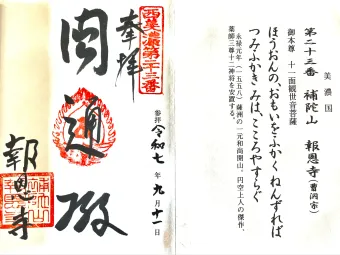 美濃国
第二十三番 補陀山 報恩寺(曹洞宗)
御本尊 十一面観世音菩薩
ほうおんの、おもいをふかくねんずれば
つみふかきみは、こころやすらぐ
永禄元年(一五五八)薩洲の一元和尚開山。円空上人の傑作、
薬師三尊十二神将を安置する。
西美濃第二十三番
奉拝
圓通殿
報恩寺
参拝 令和七年九月十一日